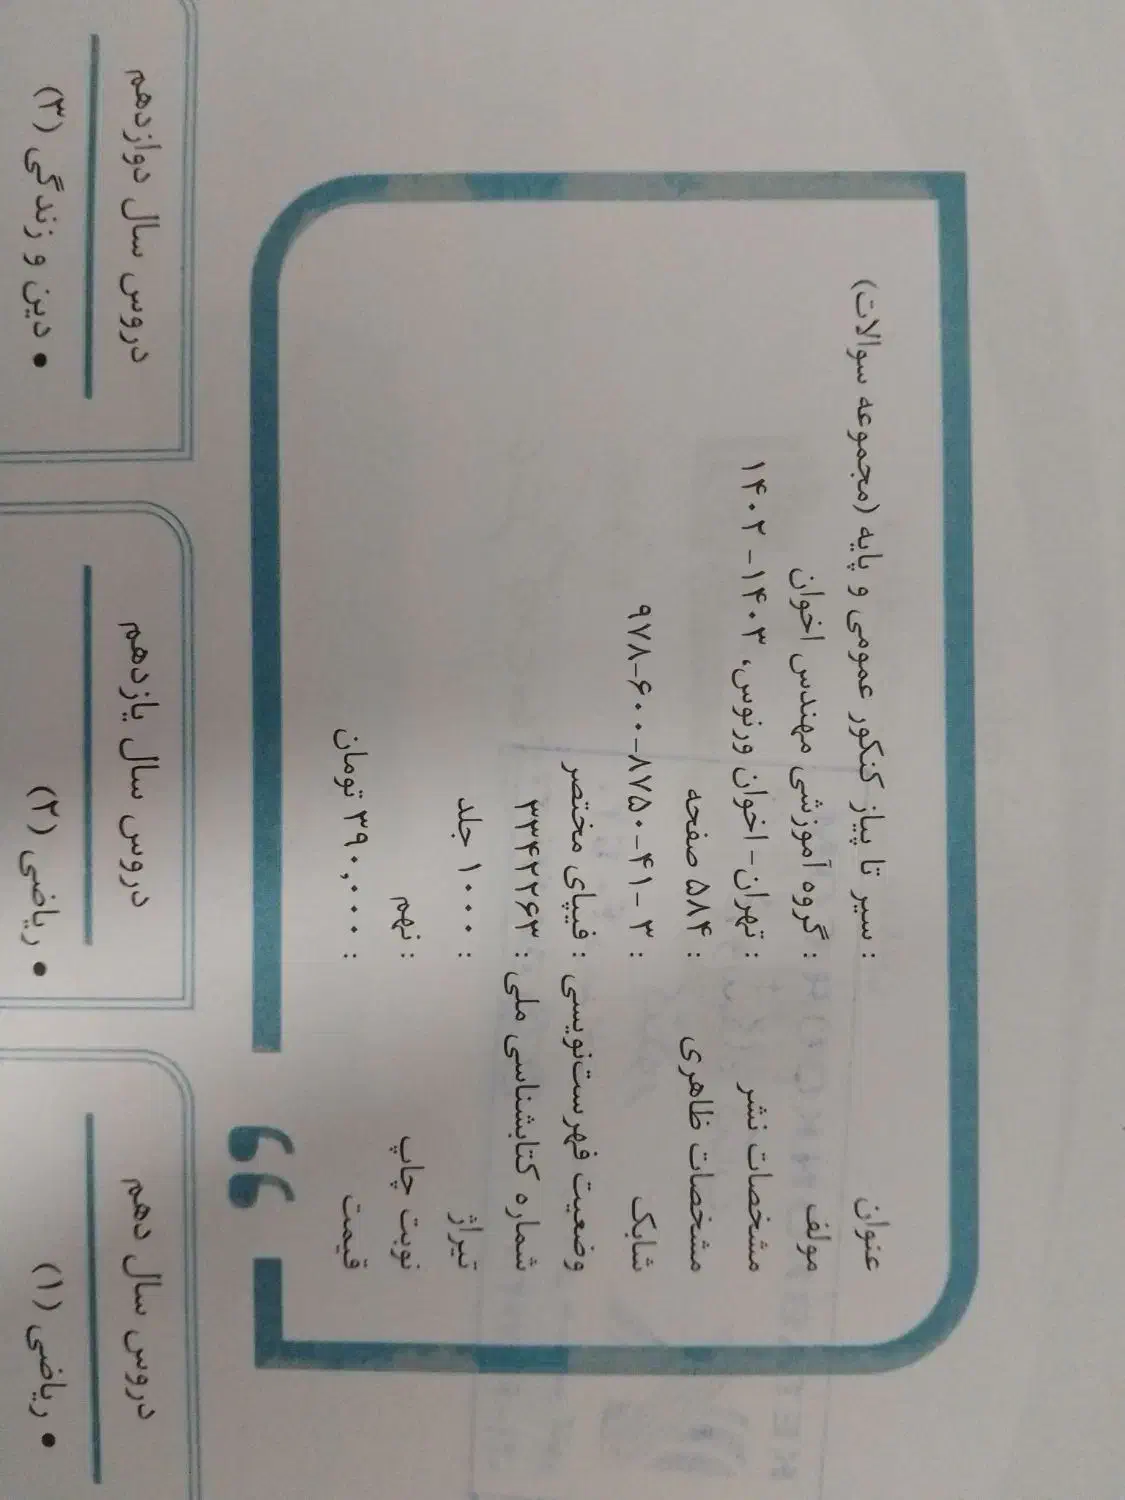 عنوان : سیر تا پیاز کنکور عمومی و پایه (مجموعه سوالات)
مولف : گروه آموزشی مهندس اخوان
مشخصات نشر : تهران - اخوان ورنوس، ۱۴۰۳ - ۱۴۰۲
مشخصات ظاهری : ۵۸۴ صفحه
شابک : ۹۷۸-۶۰۰-۸۷۵۰-۴۱-۳
وضعیت فهرست‌نویسی : فیپای مختصر
شماره کتابشناسی ملی : ۳۳۴۲۲۶۳
تیراژ : ۱۰۰۰ جلد
نوبت چاپ : نهم
قیمت : ۳۹۰,۰۰۰ تومان
دروس سال دهم
• ریاضی (۱)
دروس سال یازدهم
• ریاضی (۲)
دروس سال دوازدهم
• دین و زندگی (۳)